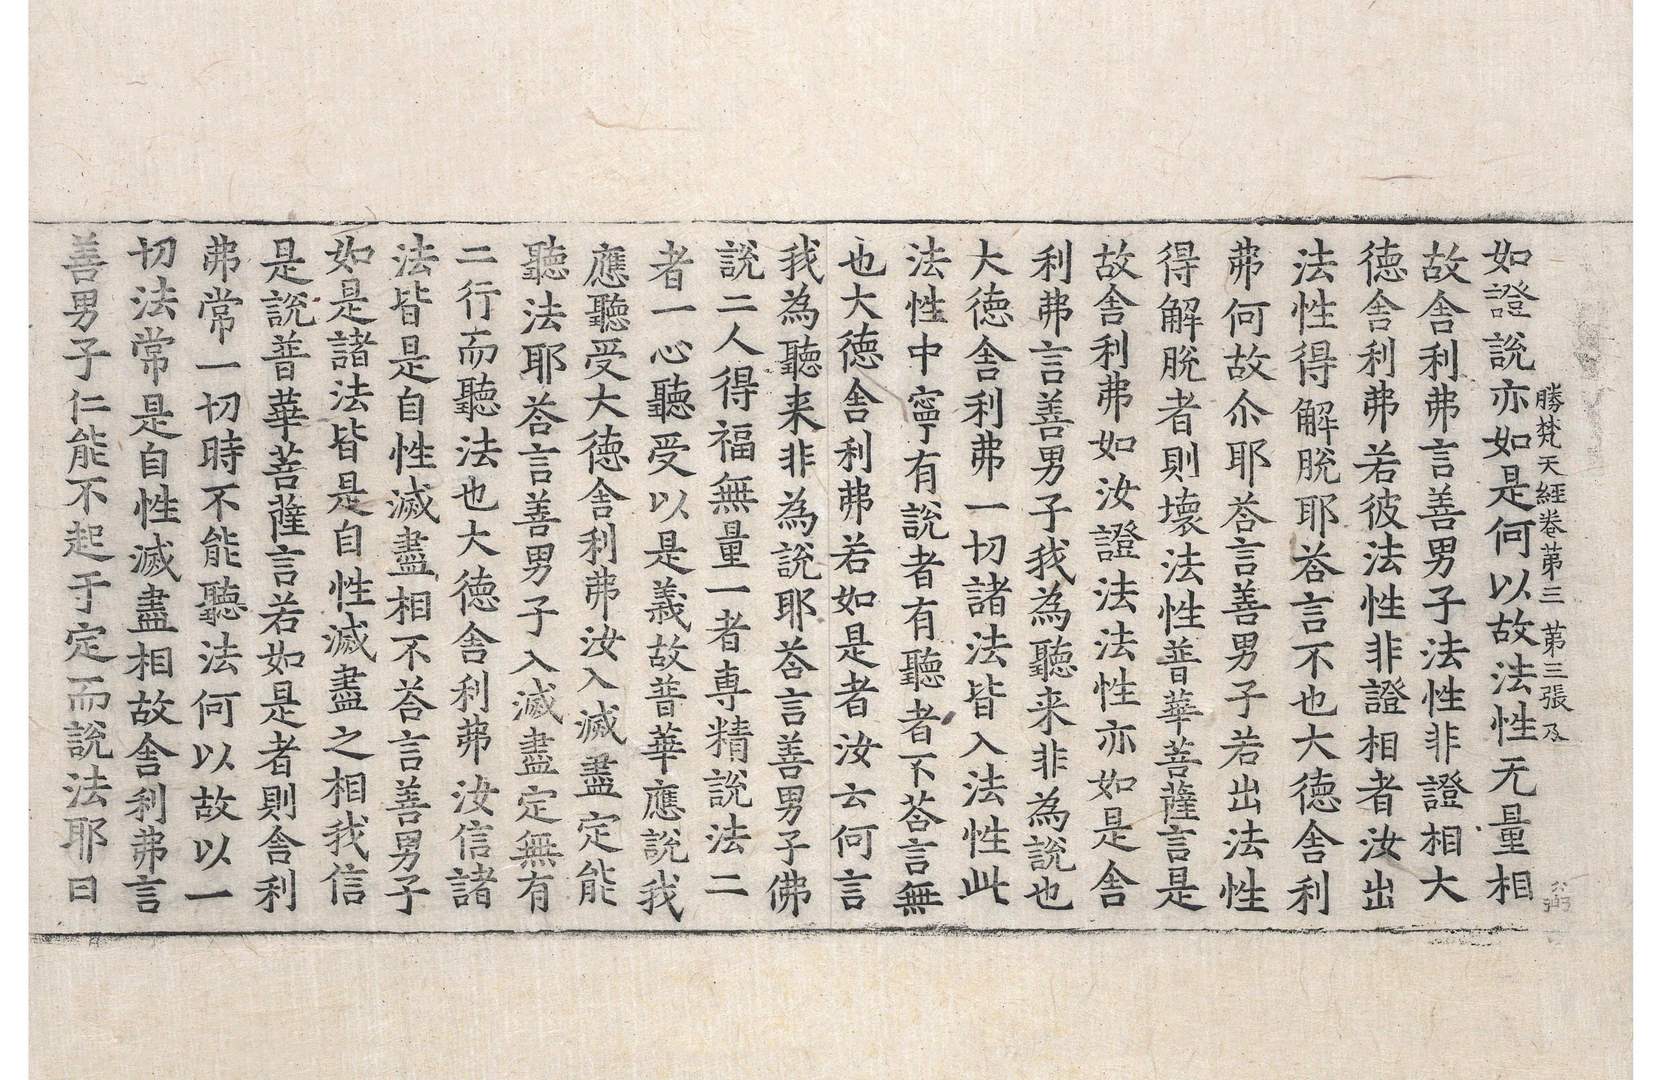 勝梵天經卷第三 第三張 及
如證說亦如是何以故法性无量相
故舍利弗言善男子法性非證相大
德舍利弗若彼法性非證相者汝出
法性得解脫耶荅言不也大德舍利
弗何故尒耶荅言善男子若出法性
得解脫者則壞法性普華菩薩言是
故舍利弗如汝證法法性亦如是舍
利弗言善男子我為聽来非為說也
大德舍利弗一切諸法皆入法性此
法性中寧有說者有聽者不荅言無
也大德舍利弗若如是者汝云何言
我為聽来非為說耶荅言善男子佛
說二人得福無量一者專精說法二
者一心聽受以是義故普華應說我
應聽受大德舍利弗汝入滅盡定能
聽法耶荅言善男子入滅盡定無有
二行而聽法也大德舍利弗汝信諸
法皆是自性滅盡相不荅言善男子
如是諸法皆是自性滅盡之相我信
是說普華菩薩言若如是者則舍利
弗常一切時不能聽法何以故以一
切法常是自性滅盡相故舍利弗言
善男子仁能不起于定而說法耶曰